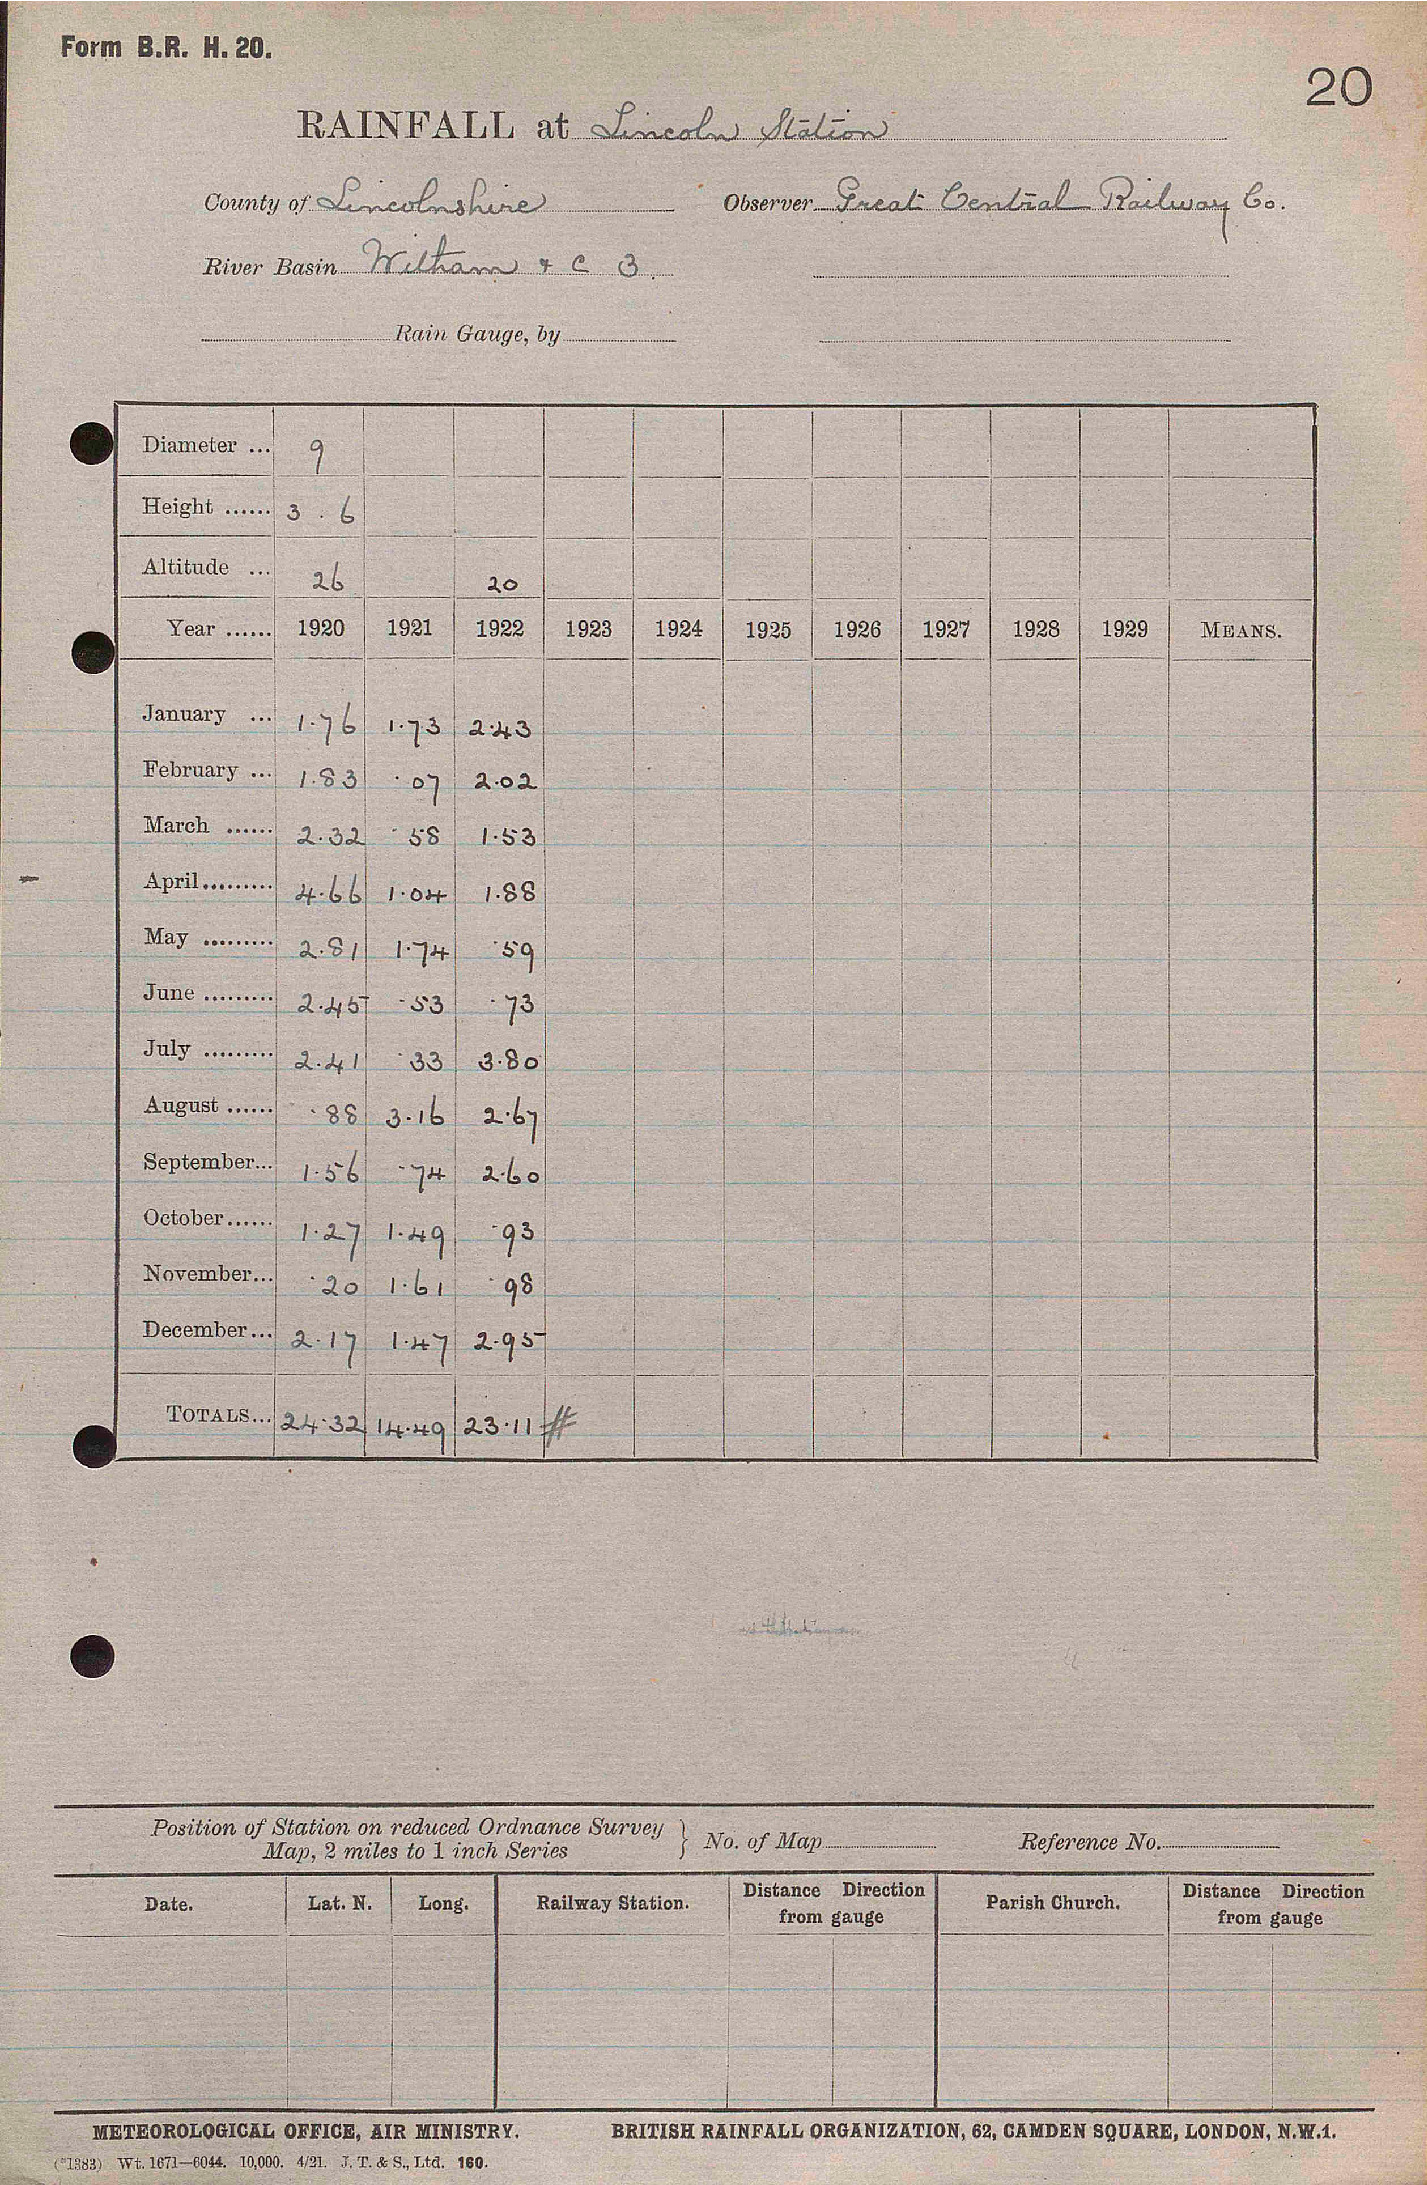 Form B.R. H. 20.
20
RAINFALL at Lincoln Station
County of Lincolnshire Observer Great Central Railway Co.
River Basin Witham & C 3
Rain Gauge, by
Diameter ... 9
Height ...... 3 . 6
Altitude ... 26 20
Year ...... 1920 1921 1922 1923 1924 1925 1926 1927 1928 1929 MEANS.
January ... 1.76 1.73 2.43
February ... 1.83 .07 2.02
March ...... 2.32 .58 1.53
April......... 4.66 1.04 1.88
May ......... 2.81 1.74 .59
June ......... 2.45 .53 .73
July ......... 2.41 .33 3.80
August ...... .88 3.16 2.67
September... 1.56 .74 2.60
October...... 1.27 1.49 .93
November... .20 1.61 .98
December... 2.17 1.47 2.95
TOTALS... 24.32 14.49 23.11 #
Position of Station on reduced Ordnance Survey
Map, 2 miles to 1 inch Series } No. of Map Reference No.
Date. Lat. N. Long. Railway Station. Distance Direction from gauge Parish Church. Distance Direction from gauge
METEOROLOGICAL OFFICE, AIR MINISTRY. BRITISH RAINFALL ORGANIZATION, 62, CAMDEN SQUARE, LONDON, N.W.1.
(*1383) Wt. 1671—6044. 10,000. 4/21. J. T. & S., Ltd. 160.